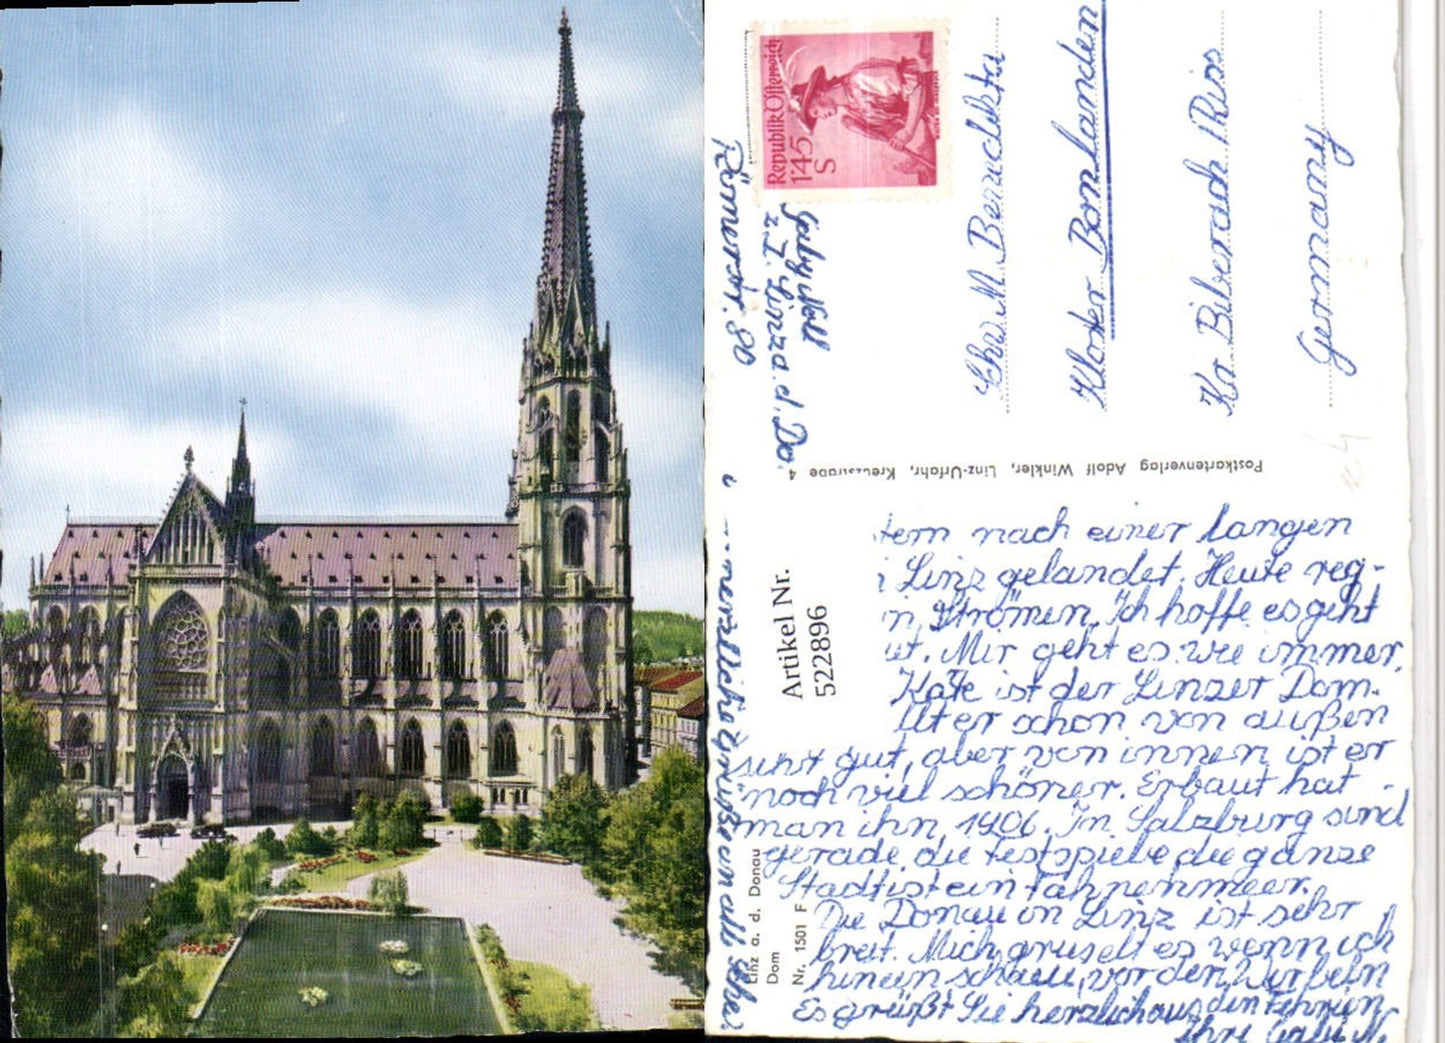 Republik Österreich
1'45
S
Gaby Noll
z. Z. Linz a. d. Do.
Römerstr. 80
Ehrw. M. Benedikta
Kloster Bonlanden
Kr. Biberach / Riss
Germany
Postkartenverlag Adolf Winkler, Linz-Urfahr, Kreuzstraße 4
Artikel Nr.
522896
tern nach einer langen
Linz gelandet. Heute reg-
n Strömen. Ich hoffe es geht
ut. Mir geht es wie immer.
Karte ist der Linzer Dom.
llt er schon von außen
sehr gut, aber von innen ist er
noch viel schöner. Erbaut hat
man ihn 1906. In Salzburg sind
gerade die Festspiele die ganze
Stadt ist ein Fahnenmeer.
Die Donau in Linz ist sehr
breit. Mich gruselt es wenn ich
hinein schau, vor den Wirbeln
Es grüßt Sie herzlich aus den Ferien
Ihre Gaby N.
Linz a. d. Donau
Dom
Nr. 1501 F
herzliche Grüße an all